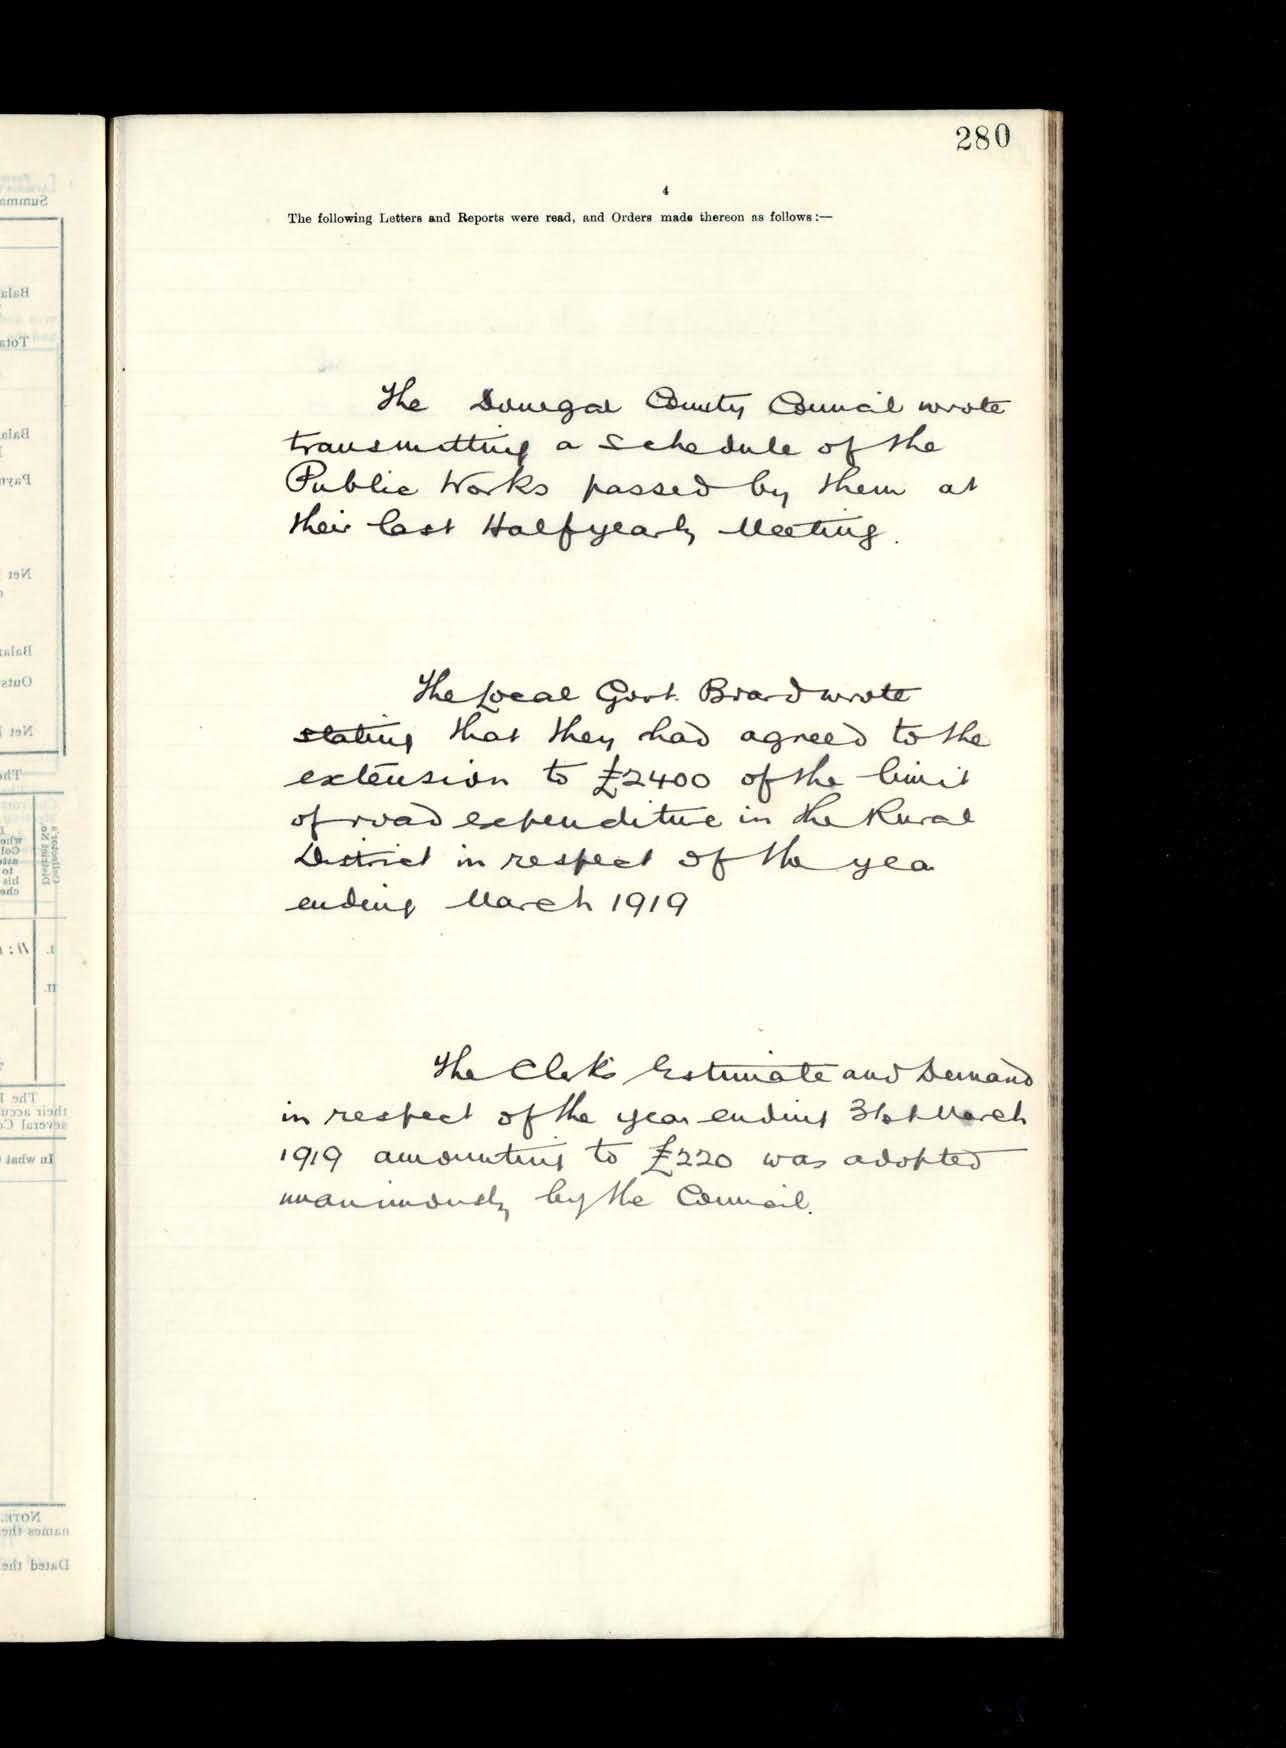 280
4
The following Letters and Reports were read, and Orders made thereon as follows :—
The Donegal County Council wrote
transmitting a Schedule of the
Public Works passed by them at
their last Halfyearly Meeting.
The Local Govt. Board wrote
stating that they had agreed to the
extension to £2400 of the limit
of road expenditure in the Rural
District in respect of the yea
ending March 1919
The Clerk's Estimate and Demand
in respect of the year ending 31st March
1919 amounting to £220 was adopted
unanimously by the Council.